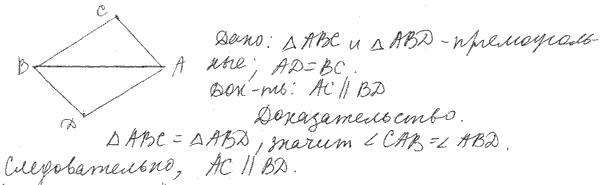 C
B
A
D
Дано: △ABC и △ABD - прямоуголь-
ные; AD=BC.
Док-ть: AC ∥ BD
Доказательство.
△ABC = △ABD, значит ∠CAB=∠ABD.
Следовательно, AC ∥ BD.